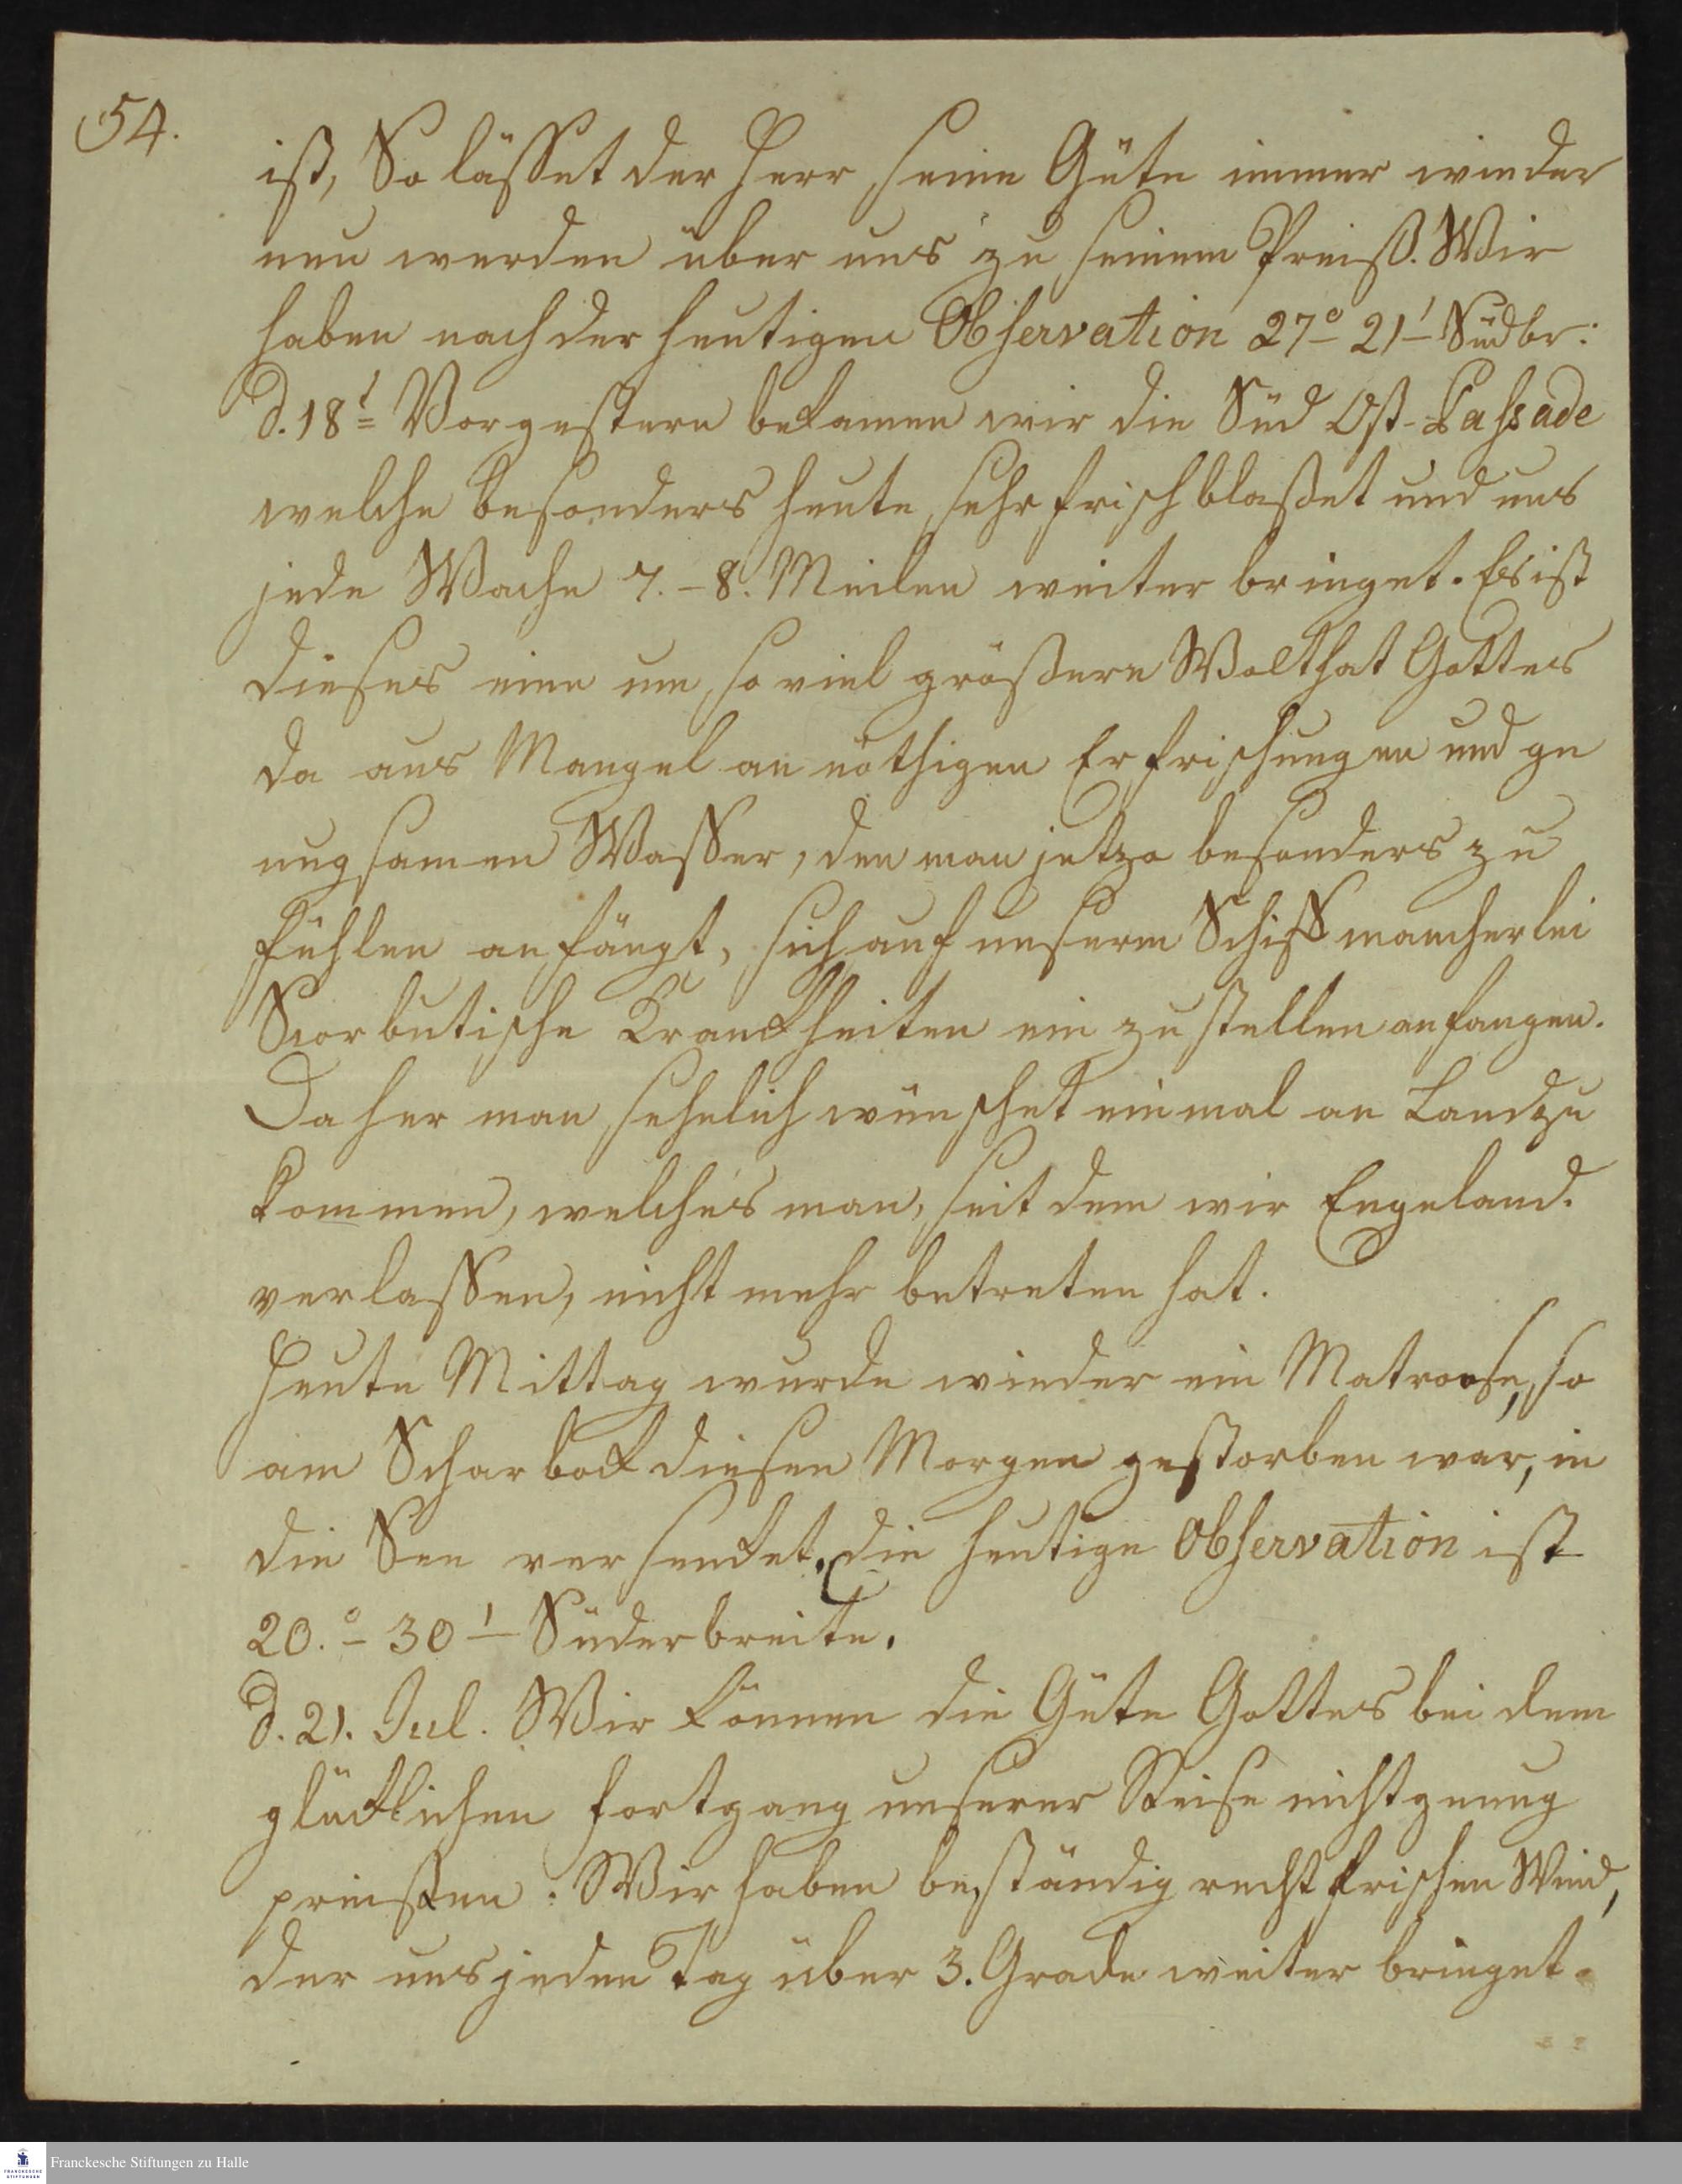 54.
ist, So lässet der Herr seine Güte immer wieder
neu werden über uns zu seinem Preiß. Wir
haben nach der heutigen Observation 27° 21' Südbr:
d. 18t Vorgestern bekamen wir die Süd Ost-Passade
welche besonders heute sehr frisch blaßet und uns
jede Wache 7.-8. Meilen weiter bringet. Es ist
dieses eine um so viel größere Wolthat Gottes
da aus Mangel an nöthigen Erfrischungen und ge
nugsamen Wasser, den man jetzo besonders zu
fühlen anfängt, sich auf unserm Schiff mancherlei
Scorbutische Kranckheiten ein zu stellen anfangen.
Daher man sehnlich wünschet einmal an Land zu
kommen, welches man, seit dem wir Engeland.
verlassen, nicht mehr betreten hat.
Heute Mittag wurde wieder ein Matroose, so
am Scharbock diesen Morgen gestorben war, in
die See versencket. Die heutige Observation ist
20.° 30' Süderbreite.
d. 21. Jul. Wir können die Güte Gottes bei dem
glücklichen Fortgang unserer Reise nicht genug
preißen: Wir haben beständig recht frischen Wind,
der uns jeden Tag über 3. Grade weiter bringet.
FRANCKESCHE STIFTUNGEN
Franckesche Stiftungen zu Halle